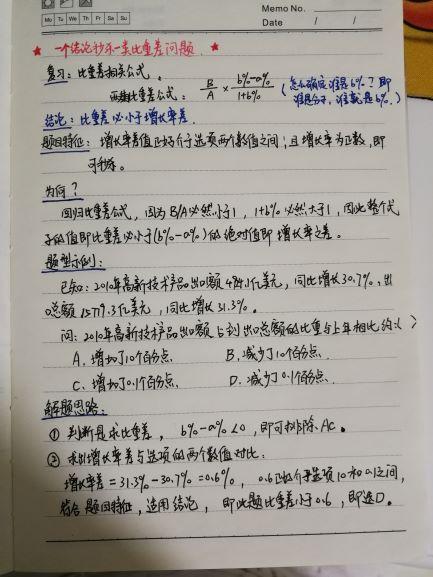 Memo No.
Mo Tu We Th Fr Sa Su
Date / /
★ 一个结论秒杀一类比重差问题 ★
复习：比重差相关公式。
两期比重差公式：B/A × (b%-a%)/(1+b%) （怎么确定谁是b%？即
谁是分子，谁就是b%。）
结论：比重差必小于增长率差.
题目特征：增长率差值正好介于选项两个数值之间，且增长率为正数，即
可秒杀。
为何？
回归比重差公式，因为B/A必然小于1，1+b%必然大于1，因此整个式
子的值即比重差必小于(b%-a%)的绝对值即增长率之差。
题型示例：
已知：2010年高新技术产品出口额4924.1亿美元，同比增长30.7%，出
口总额15779.3亿美元，同比增长31.3%。
问：2010年高新技术产品出口额占到出口总额的比重与上年相比约（ ）
A. 增加了10个百分点. B. 减少了10个百分点.
C. 增加了0.1个百分点. D. 减少了0.1个百分点.
解题思路：
① 判断是求比重差，b%-a%<0，即可排除AC。
② 求出增长率差与选项的两个数值对比：
增长率差=31.3%-30.7%=0.6%，0.6正好介于选项10和0.1之间，
符合题目特征，适用结论，即此题比重差小于0.6，即选D。